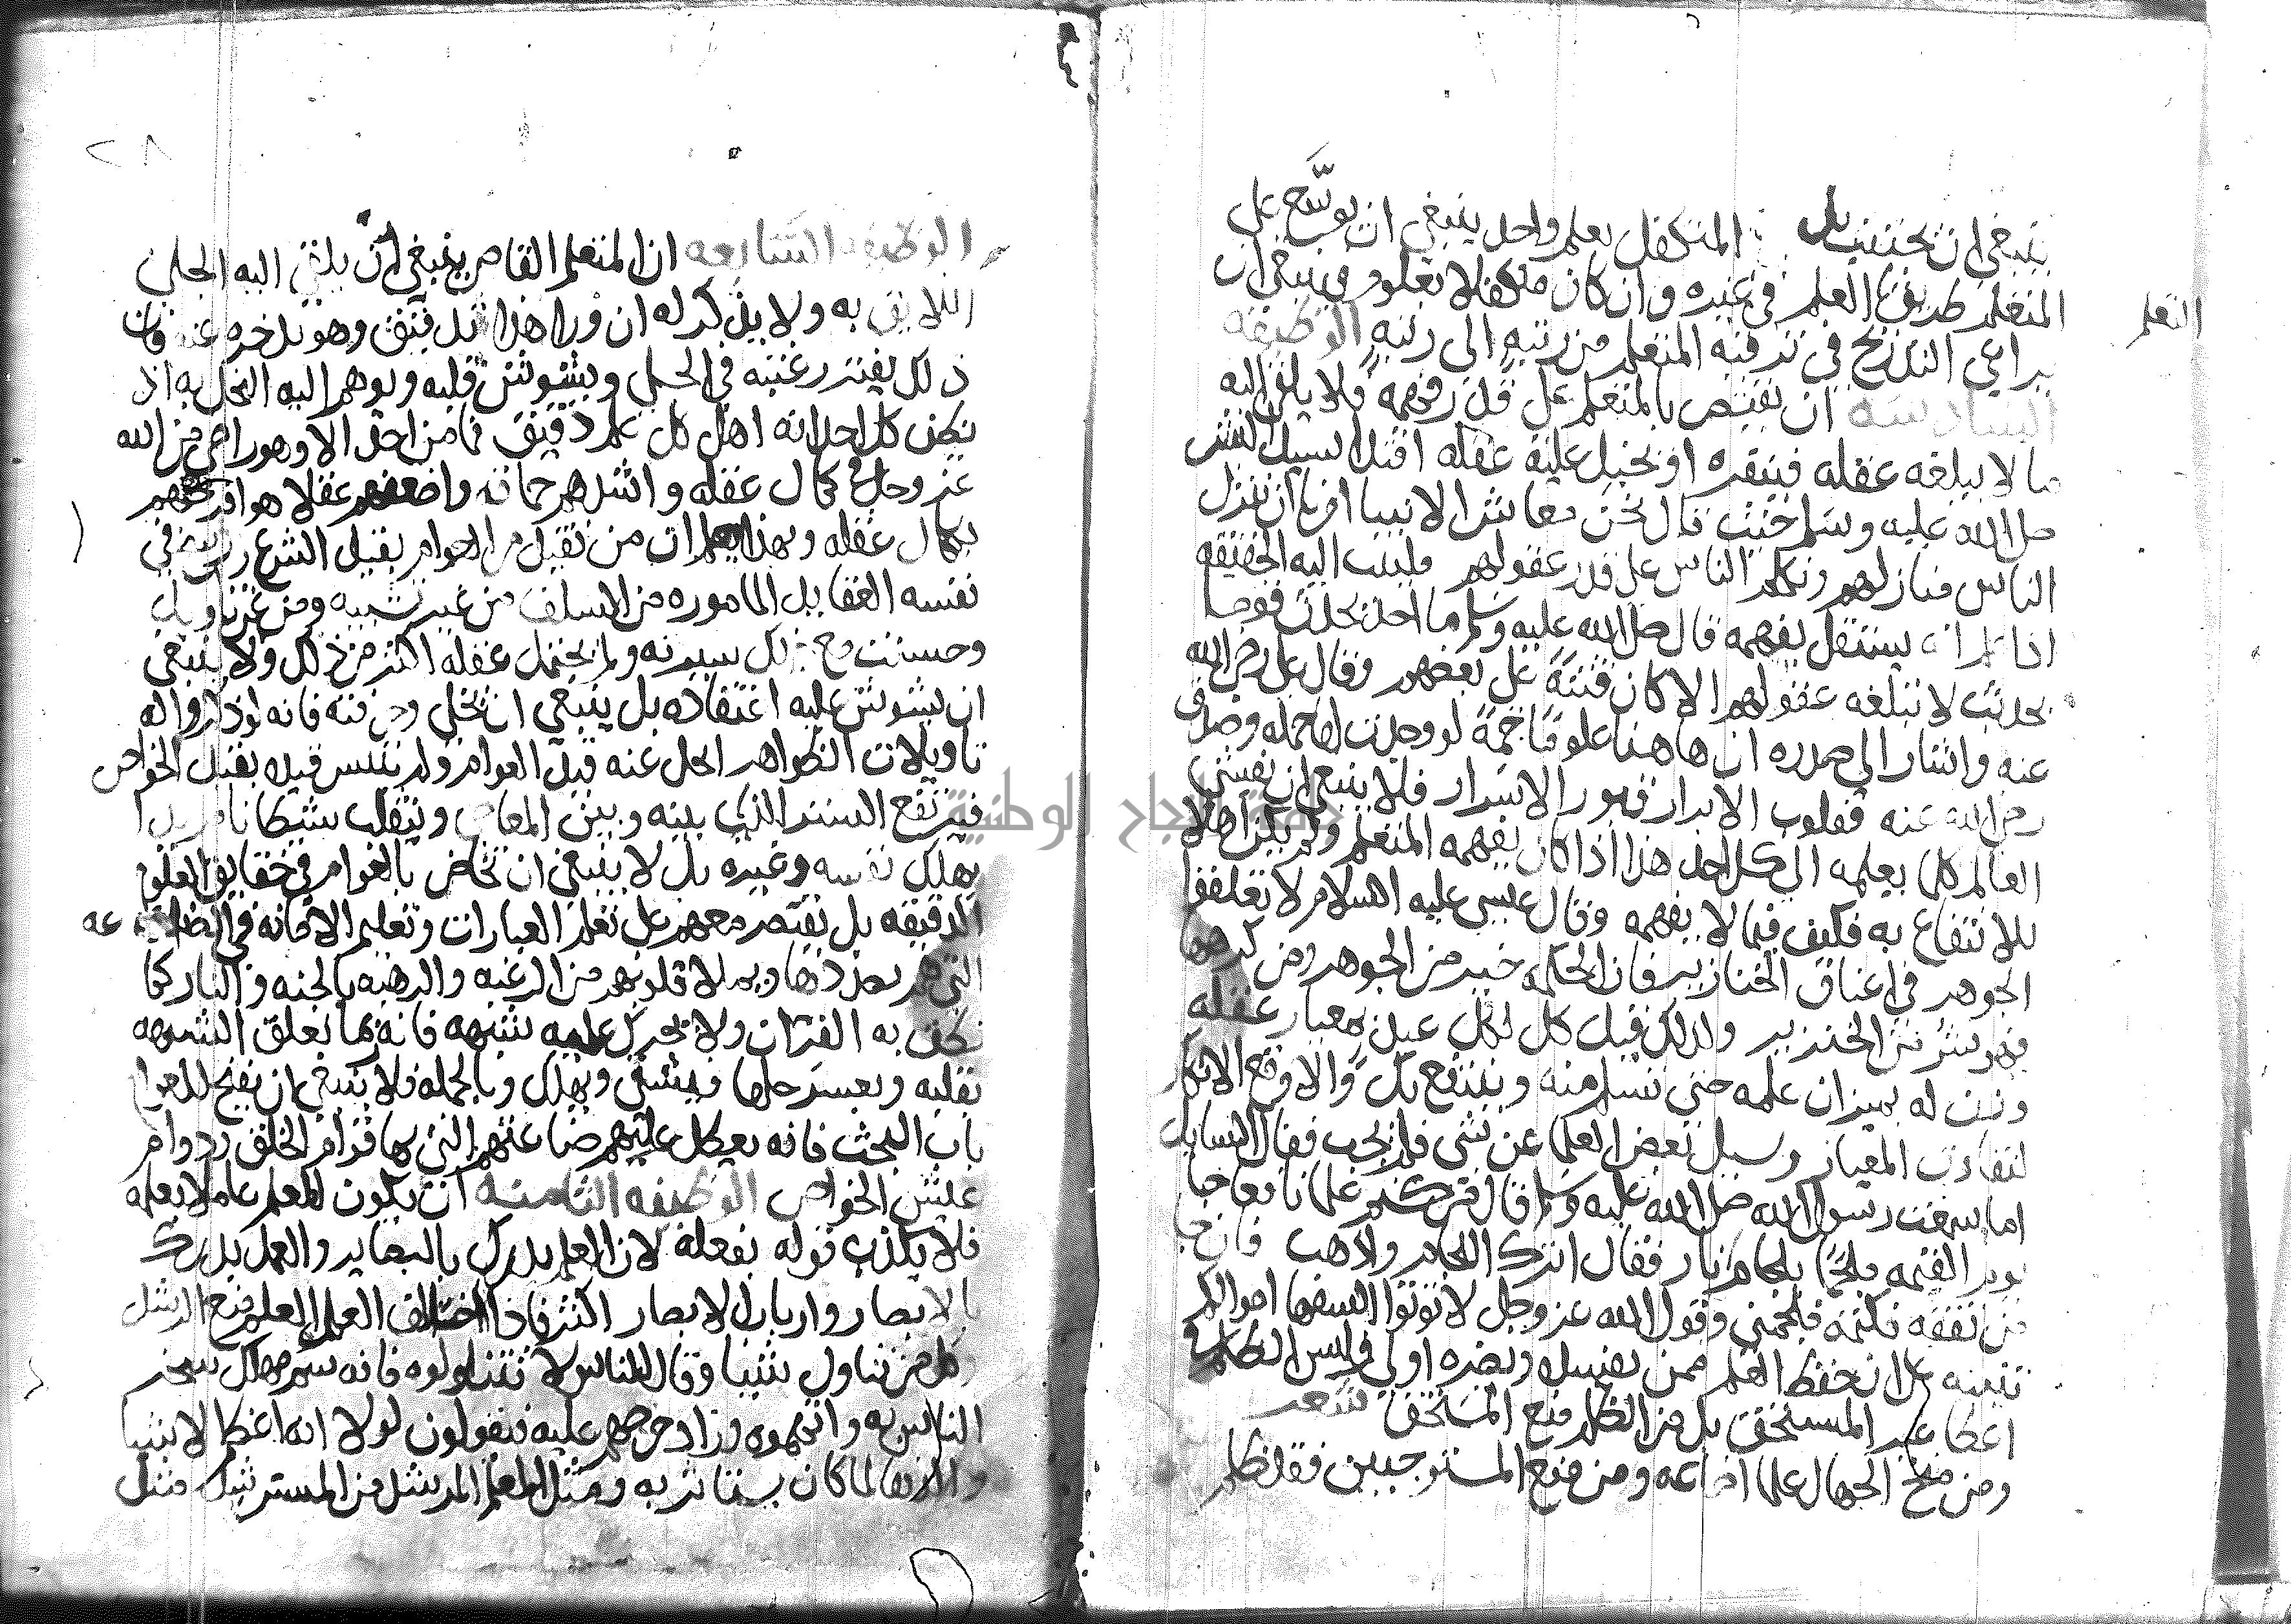 ينبغي ان تجتنب بل المتكفل بعلم واحد ينبغي ان يوسّع على
المتعلم طريق العلم في غيره وان كان متكفلا بعلوم فينبغي ان
التعلم
يراعي التدريج في ترقية المتعلم من رتبة الى رتبة الوظيفه
السادسه ان يقتصر بالمتعلم على قدر فهمه فلا يلقي اليه
ما لا يبلغه عقله فينفره او يخبل عليه عقله اقتدا بسيد البشر
صلى الله عليه وسلم حيث قال نحن معاشر الانبيا امرنا ان ننزل
الناس منازلهم ونكلم الناس على قدر عقولهم فليبث اليه الحقيقه
اذا علم انه يستقل بفهمه قال صلى الله عليه وسلم ما احد يحدث قوما
بحديث لا تبلغه عقولهم الا كان فتنة على بعضهم وقال علي رضي الله
عنه واشار الى صدره ان هاهنا علوما جمة لو وجدت لها حمله وصدق
رضي الله عنه فقلوب الابرار قبور الاسرار فلا ينبغي ان يفشي
العالم كلما يعلمه الى كل احد هذا اذا كان يفهمه المتعلم ولم يكن اهلا
للانتفاع به فكيف فيما لا يفهمه وقال عيسى عليه السلام لا تعلقوا
الجوهر في اعناق الخنازير فان الحكمه خير من الجوهر ومن كرهها
فهو شر من الخنزير ولذلك قيل كل لكل عبد بمعيار عقله
وزن له بميزان علمه حتى تسلم منه وينتفع بك والا وقع الانكار
لتفاوت المعيار وسيل بعض العلما عن شي فلم يجب فقال السايل
اما سمعت رسول الله صلى الله عليه وسلم قال من كتم علما نافعا جا
يوم القيمه ملجما بلجام من نار فقال اترك اللجام واذهب فان جا
من تفقه فكتمه فليلجمني وقول الله عز وجل لا توتوا السفها اموالكم
تنبيه على ان حفظ العلم ممن يفسده ويضره اولى فليس الظلم في
اعطا غير المستحق بل من الظلم منع المستحق شعر
ومن منح الجهال علما اضاعه ومن منع المستوجبين فقد ظلم
٢٨
الوظيفه السابعه ان المتعلم القاصر ينبغي ان يلقى اليه الجلي
اللايق به ولا يذكر له ان ورا هذا تدقيق وهو يدخره عنه فان
ذلك يفتر رغبته في الجلي ويشوش قلبه ويوهم اليه البخل به اذ
يظن كل احد انه اهل كل علم دقيق فما من احد الا وهو راضي من الله
عز وجل في كمال عقله واشدهم حماقه واضعفهم عقلا هو افرحهم
بكمال عقله وبهذا يعلم ان من تقيد من العوام بقيد الشرع ورسخ في
نفسه العقايد الماثوره من السلف من غير تشبيه ومن غير تاويل
وحسنت مع ذلك سيرته ولم يحتمل عقله اكثر من ذلك ولا ينبغي
ان يشوش عليه اعتقاده بل ينبغي ان يخلى وحرفته فانه لو ذكروا له
تاويلات الظواهر انحل عنه قيد العوام ولم يتيسر قيده بقيد الخواص
فيرتفع الستر الذي بينه وبين المعاصي وينقلب شيطانا مريدا
يهلك نفسه وغيره بل لا ينبغي ان يخاض بالعوام في حقايق العلوم
الدقيقه بل يقتصر معهم على تعلم العبارات وتعليم الامانه في الصناعه
التي هم بصددها ويملا قلوبهم من الرغبه والرهبه بالجنه والنار كما
نطق به القران ولا يحرك عليه شبهه فانه ربما تعلق الشبهه
بقلبه ويعسر حلها فيشقى ويهلك وبالجمله فلا ينبغي ان يفتح للعوام
باب البحث فانه يعطل عليهم صناعتهم التي بها قوام الخلق ودوام
عيش الخواص الوظيفه الثامنه ان يكون المعلم عاملا بعلمه
فلا يكذب قوله بفعله لان العلم يدرك بالبصاير والعمل يدرك
بالابصار وارباب الابصار اكثر فاذا خالف العمل العلم منع الرشد
وكل من تناول شيا وقال للناس لا تتناولوه فانه سم مهلك سخر
الناس به واتهموه وزاد حرصهم عليه فيقولون لولا انه اعطا الاشيا
والذها لما كان يستاثر به ومثل المعلم المرشد من المسترشد مثل